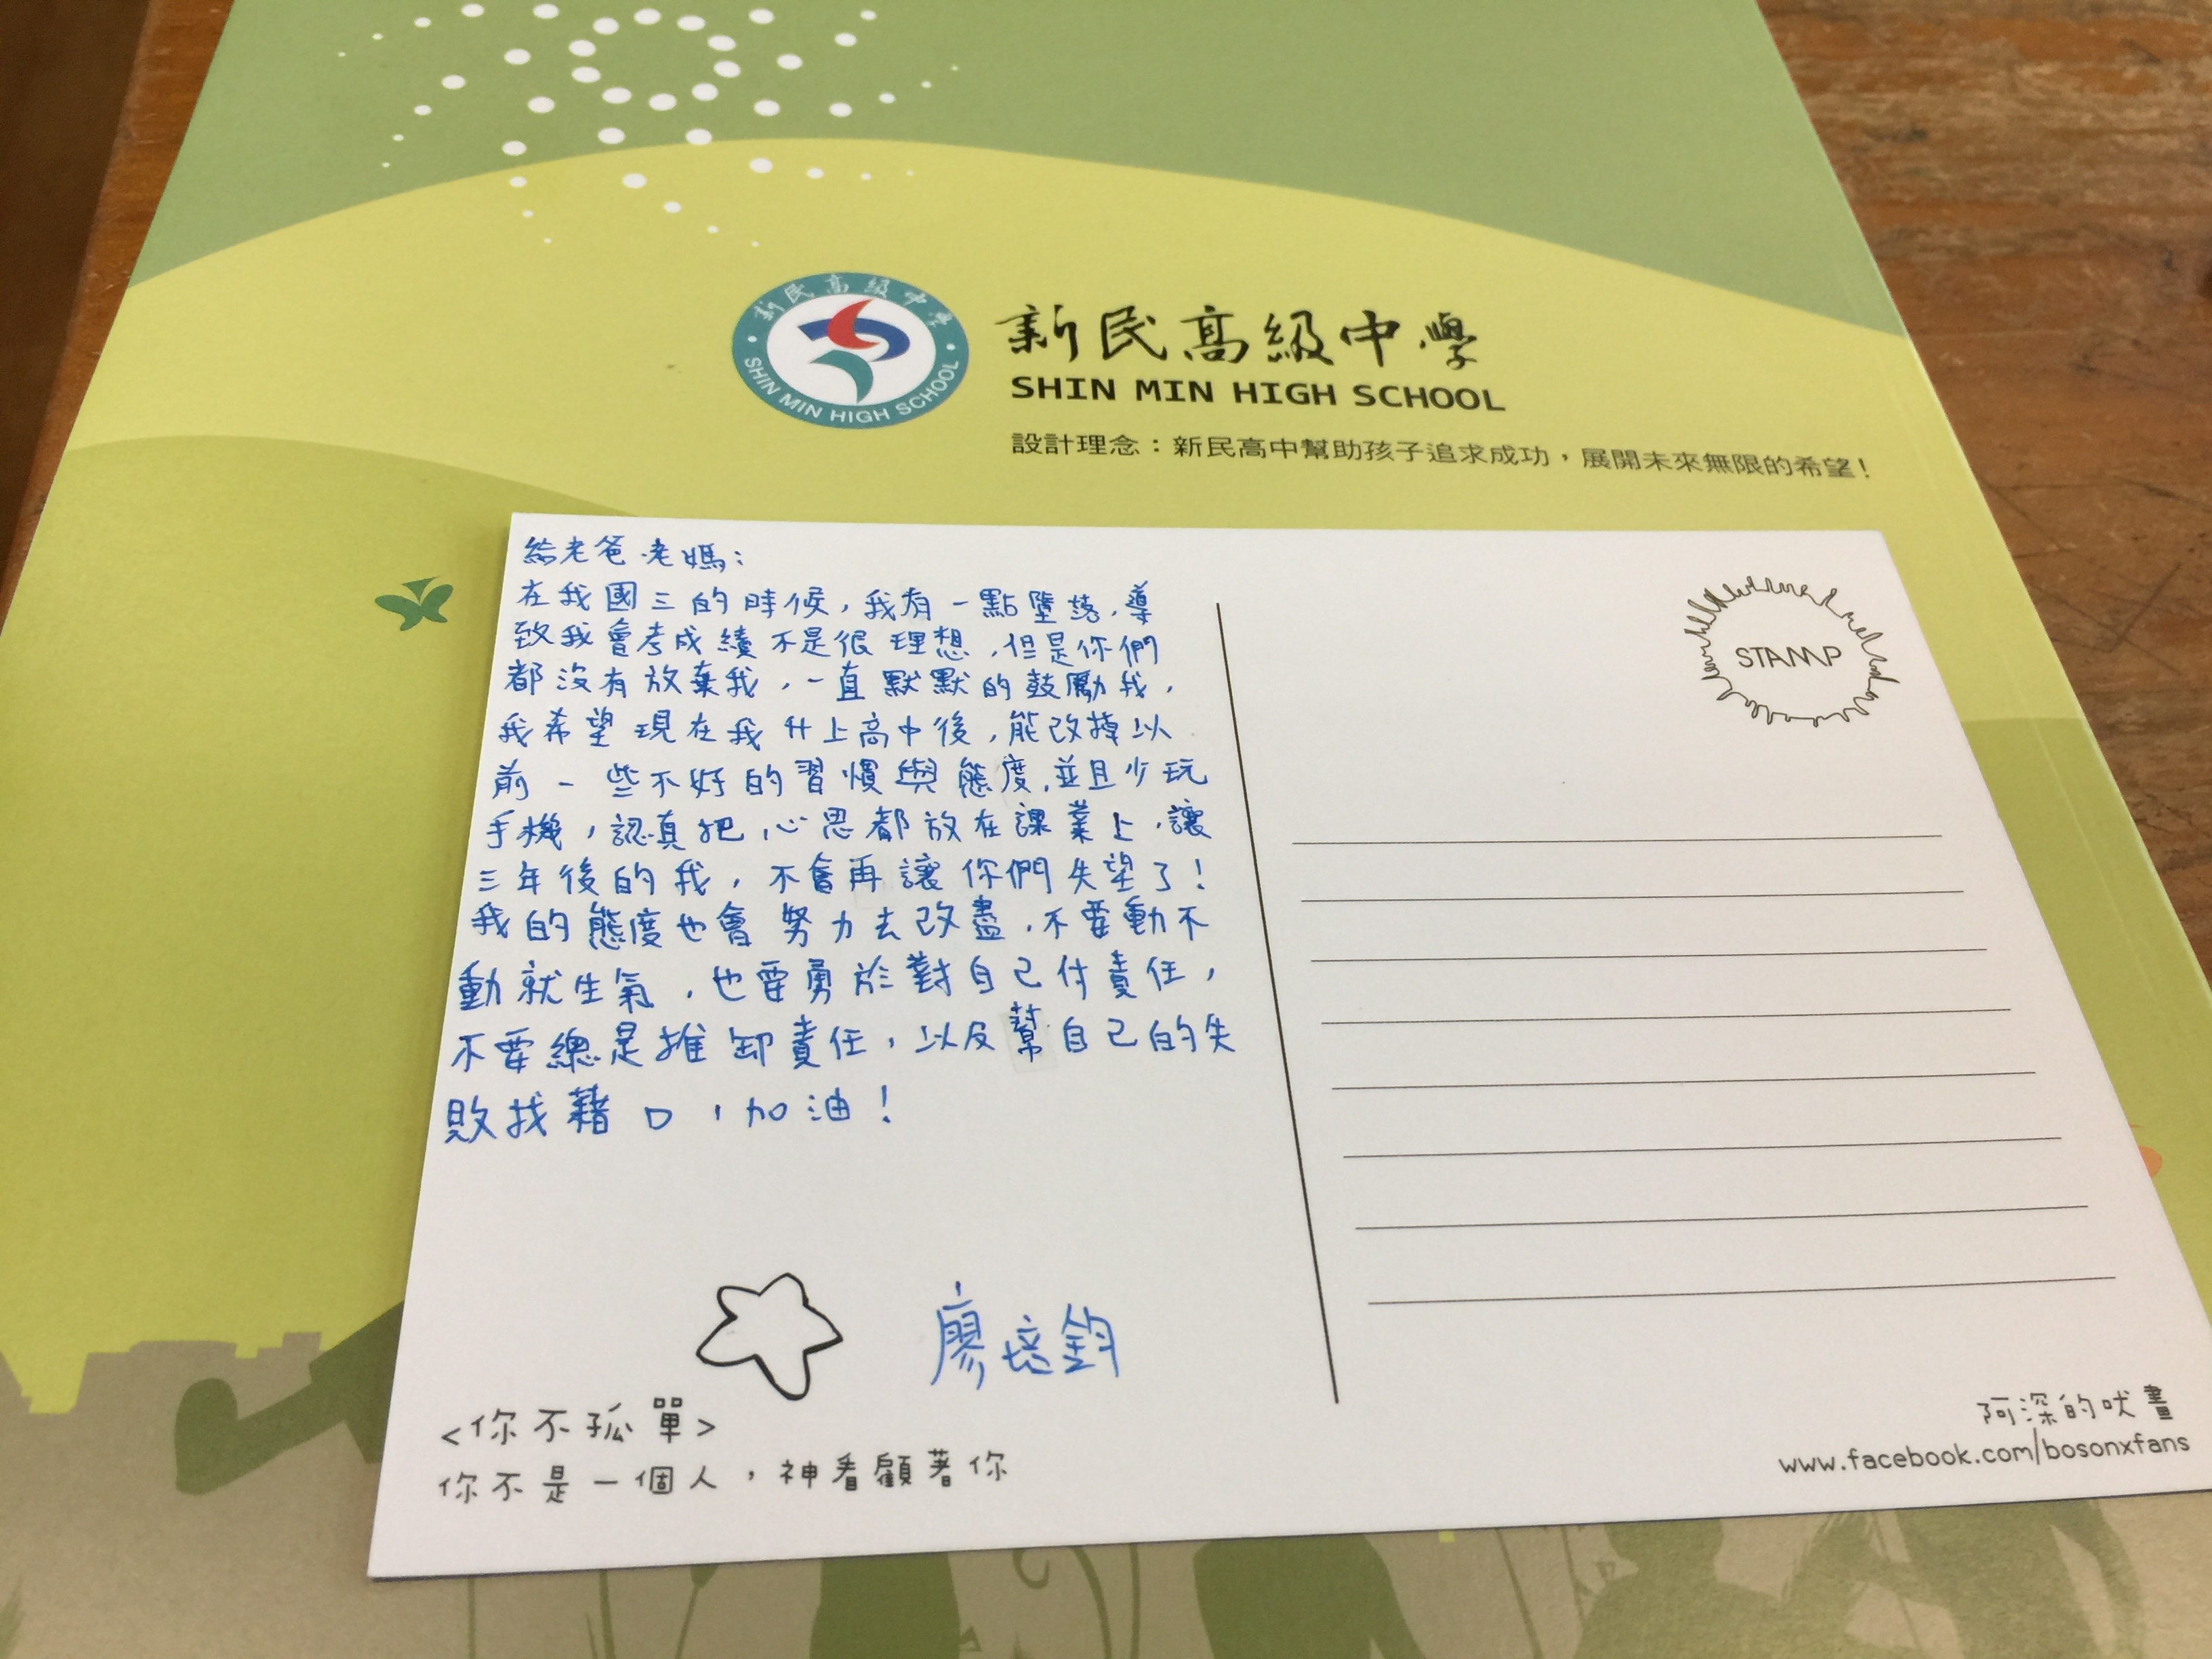 新民高級中學
SHIN MIN HIGH SCHOOL
新民高級中學
SHIN MIN HIGH SCHOOL
設計理念：新民高中幫助孩子追求成功，展開未來無限的希望！
給老爸老媽：
在我國三的時候，我有一點墮落，導
致我會考成績不是很理想，但是你們
都沒有放棄我，一直默默的鼓勵我，
我希望現在我升上高中後，能改掉以
前一些不好的習慣與態度，並且少玩
手機，認真把心思都放在課業上，讓
三年後的我，不會再讓你們失望了！
我的態度也會努力去改盡，不要動不
動就生氣，也要勇於對自己付責任，
不要總是推卸責任，以及幫自己的失
敗找藉口，加油！
廖培鈞
<你不孤單>
你不是一個人，神看顧著你
STAMP
阿深的吠畫
www.facebook.com/bosonxfans